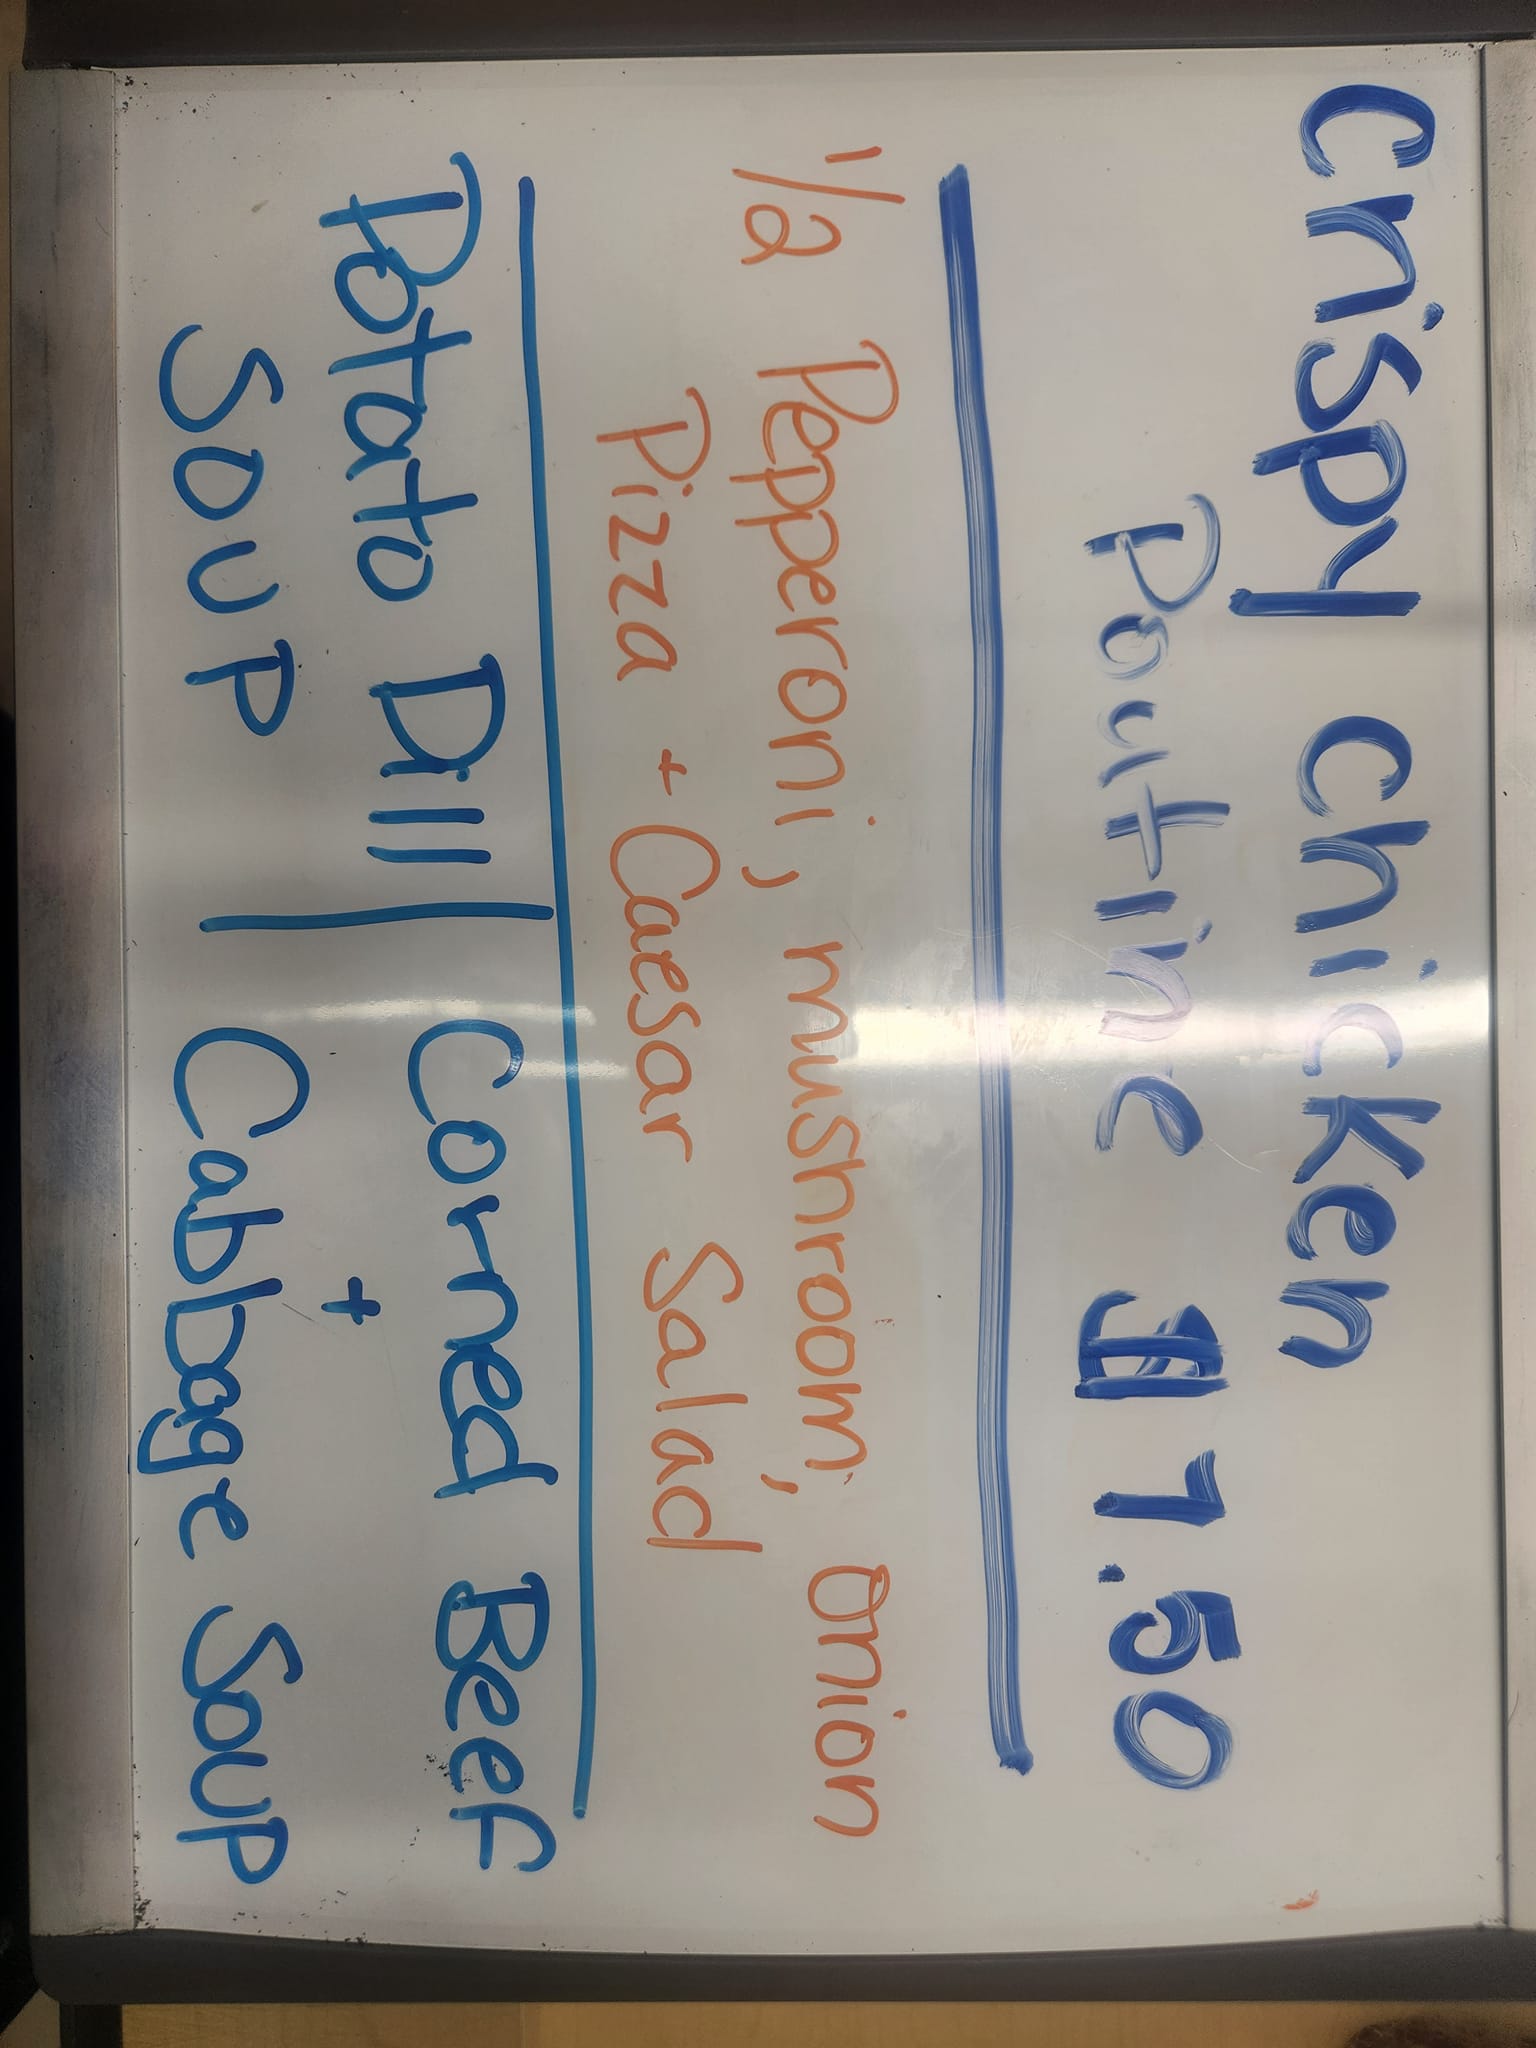 Crispy Chicken
Poutine $17.50
1/2 Pepperoni, mushroom, onion
Pizza + Caesar Salad
Potato Dill
SOUP
Corned Beef
+
Cabbage Soup